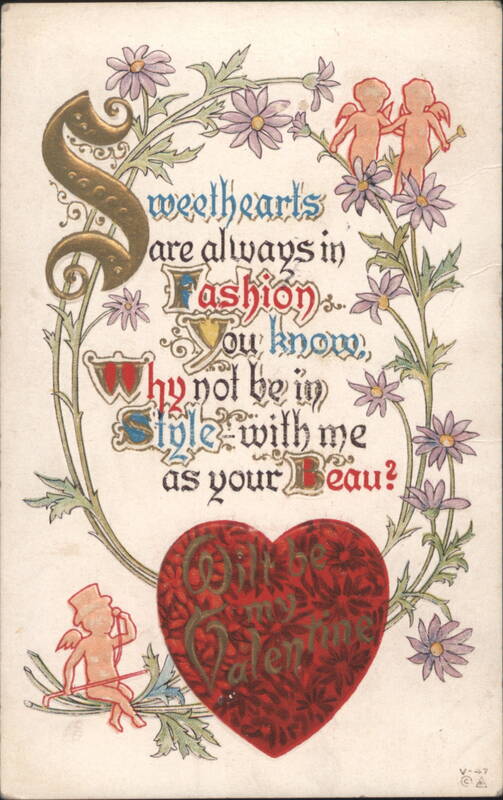 Sweethearts
are always in
Fashion
You know,
Why not be in
Style - with me
as your Beau?
Wilt be
my
Valentine
V-47
©